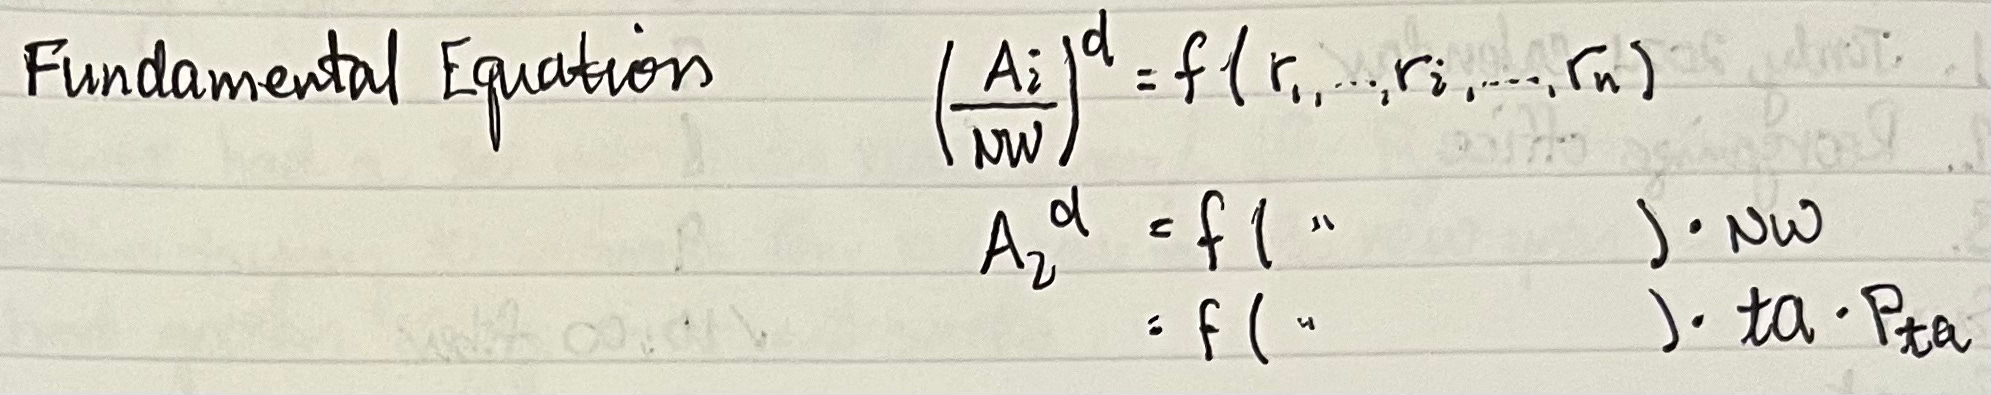 Fundamental Equation (Ai/NW)^d = f(r1, ..., ri, ..., rn)
A2^d = f( " ) · NW
= f( " ) · ta · Pta